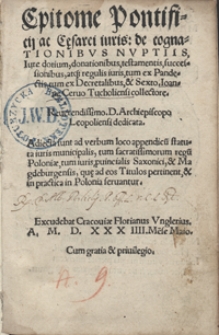 Epitome Pontifi-
cij ac Cesarei iuris: de cogna-
TIONIBVS NVPTIIS,
Iure dotium, donationibus, testamentis, succes-
sionibus, atq; regulis iuris, tum ex Pande-
ctis, tum ex Decretalibus, & Sexto, Ioan-
Ceruo Tucholiensi collectore.
D. Archiepiscopo
Leopoliensi dedicata.
sunt ad verbum loco appendicis statu-
ta iuris municipalis, tum sacratissimorum regũ
Poloniæ, tum iuris, puincialis Saxonici, & Ma
gdeburgensis, quę ad eos Titulos pertinent, &
in practica in Polonia seruantur.
Excudebat Cracouiæ Florianus Vnglerius.
A, M. D. XXX IIII. Mẽse Maio.
Cum gratia & priuilegio.
J.W.B.
A. 9.